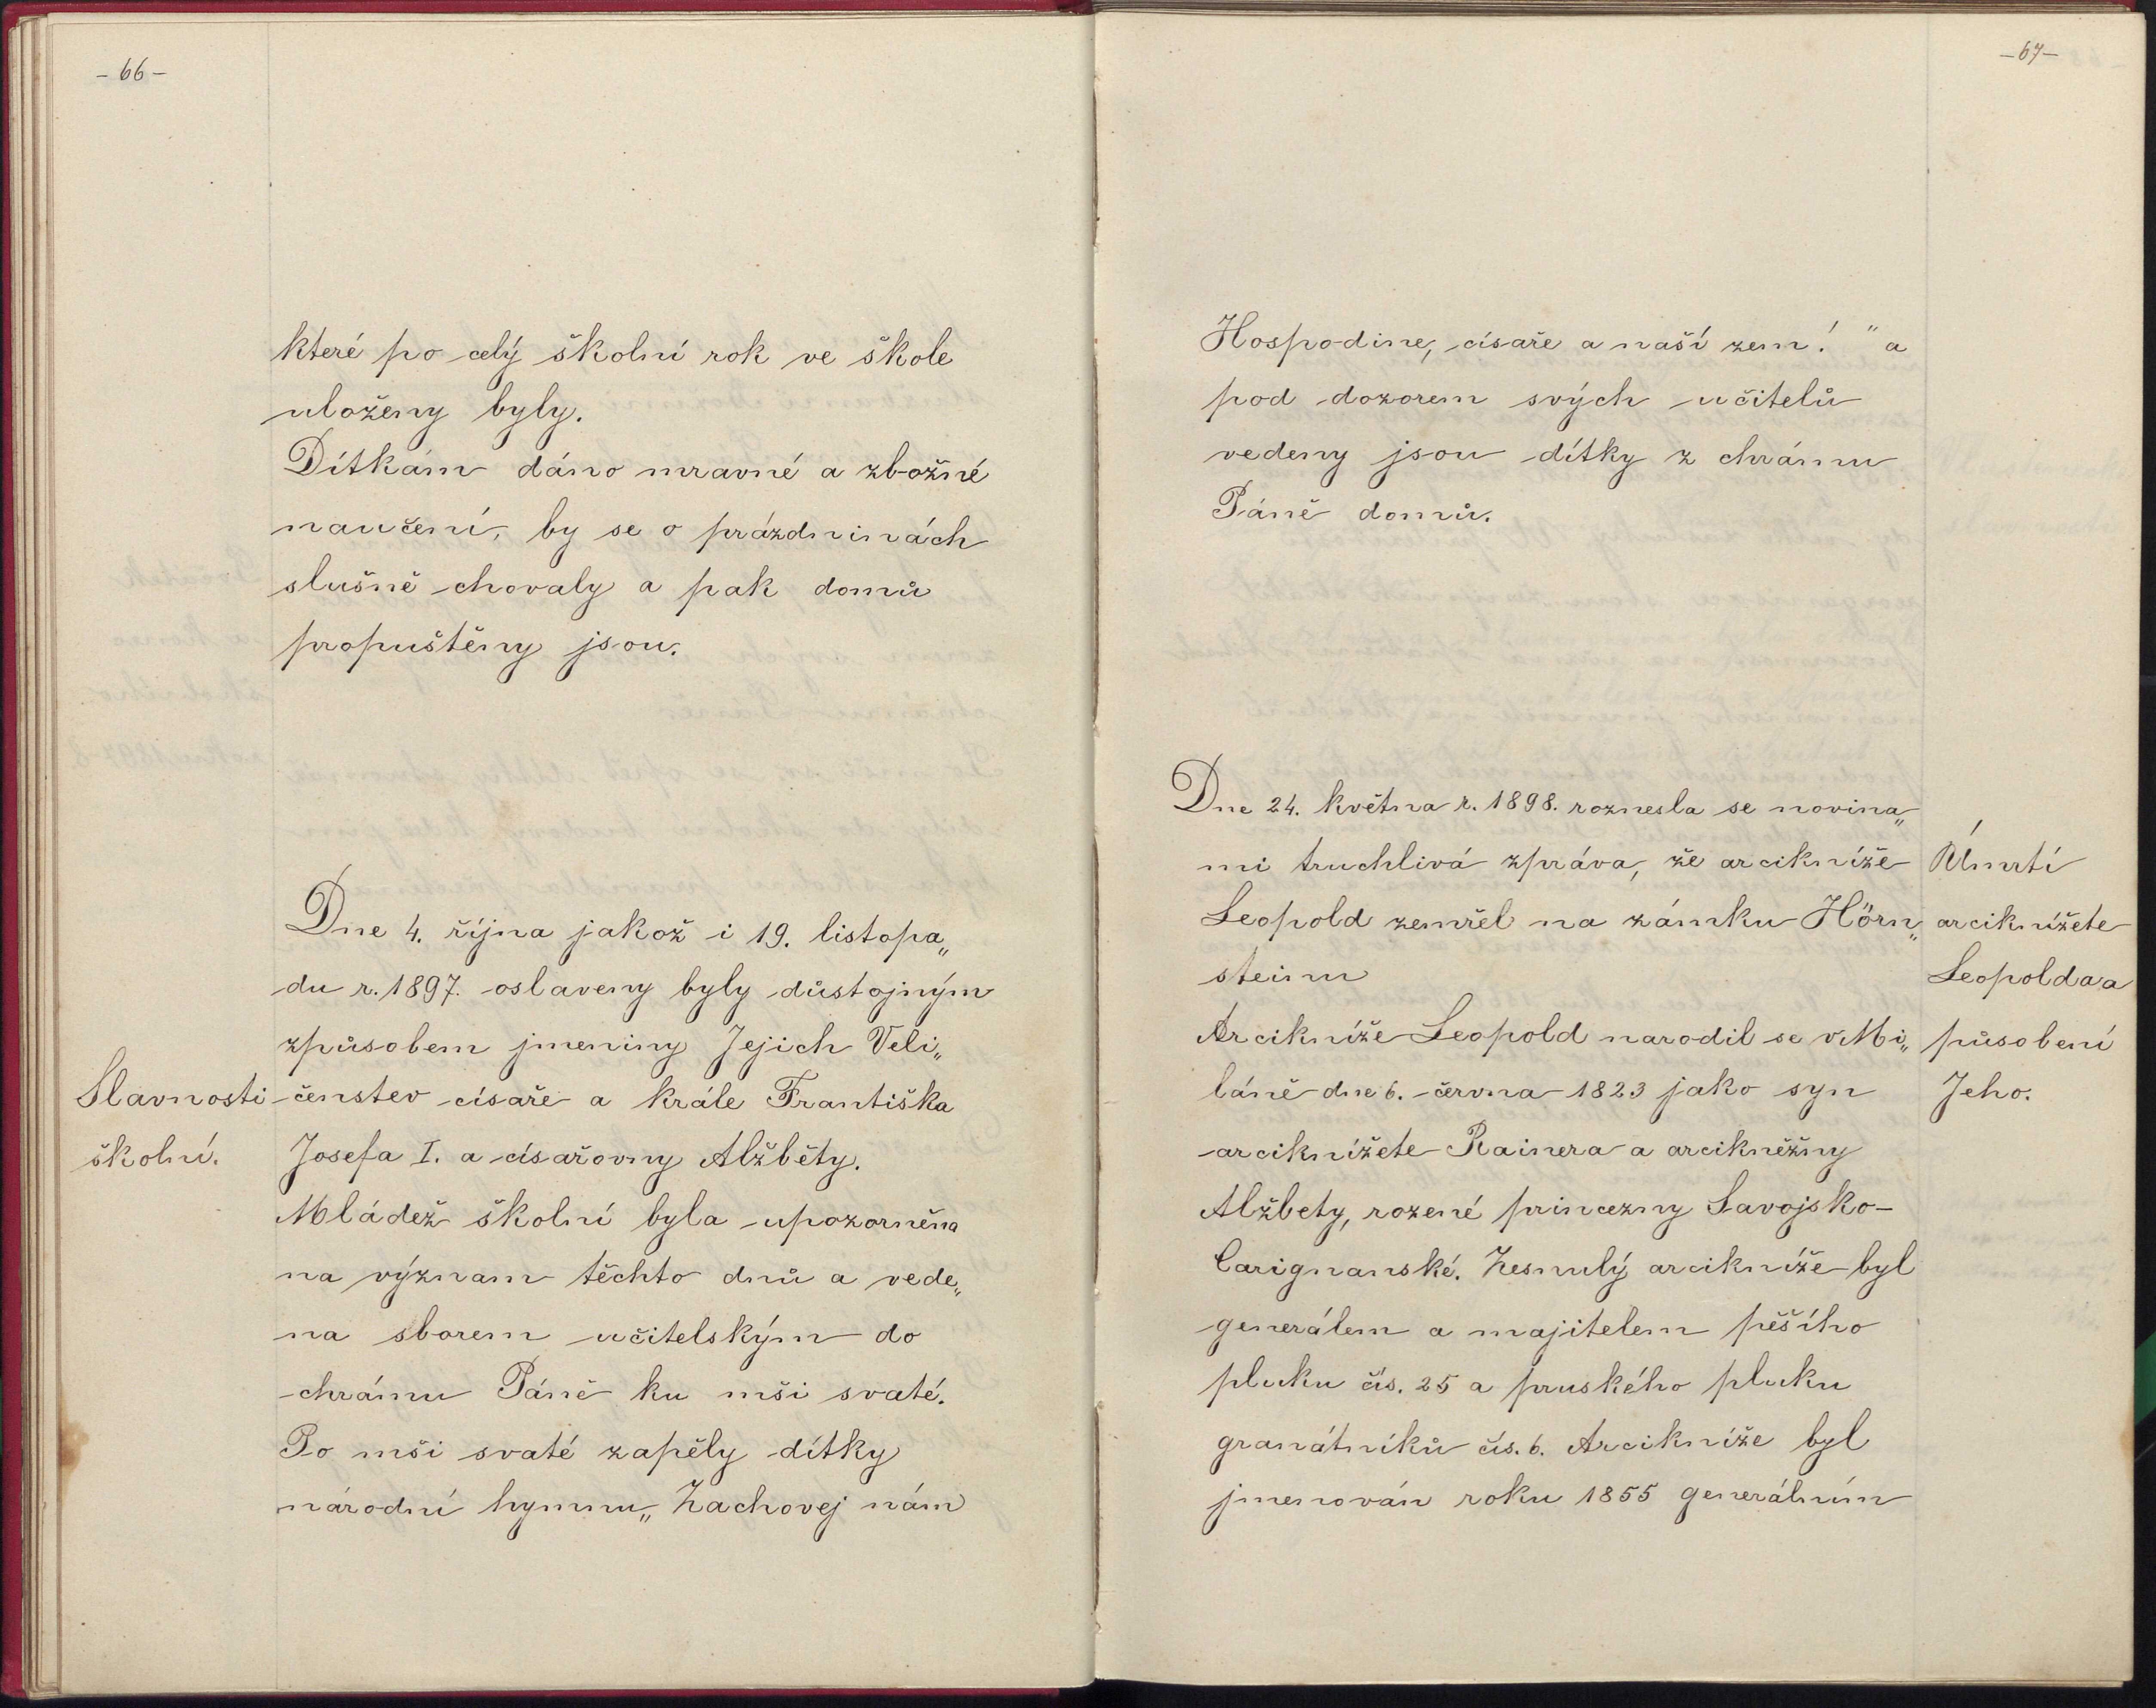 -66-
které po celý školní rok ve škole
uloženy byly.
Dítkám dáno mravné a zbožné
naučení, by se o prázdninách
slušně chovaly a pak domů
propuštěny jsou.
Slavnosti
školní.
Dne 4. října jakož i 19. listopa„
du r. 1897. oslaveny byly důstojným
způsobem jmeniny Jejich Veli„
čenstev císaře a krále Františka
Josefa I. a císařovny Alžběty.
Mládež školní byla upozorněna
na význam těchto dnů a vede„
na sborem učitelským do
chrámu Páně ku mši svaté.
Po mši svaté zapěly dítky
národní hymnu „Zachovej nám
-67-
Hospodine, císaře a naší zem!" a
pod dozorem svých učitelů
vedeny jsou dítky z chrámu
Páně domů.
Dne 24. května r. 1898. roznesla se novina„
mi truchlivá zpráva, že arcikníže
Leopold zemřel na zámku Hörn„
steinu
Arcikníže Leopold narodil se v Mi„
láně dne 6. června 1823 jako syn
arciknížete Rainera a arcikněžny
Alžbety, rozené princezny Savojsko-
Carignanské. Zesnulý arcikníže byl
generálem a majitelem pěšího
pluku čís. 25 a pruského pluku
granátníků čís. 6. Arcikníže byl
jmenován roku 1855 generálním
Úmrtí
arciknížete
Leopolda a
působení
Jeho.